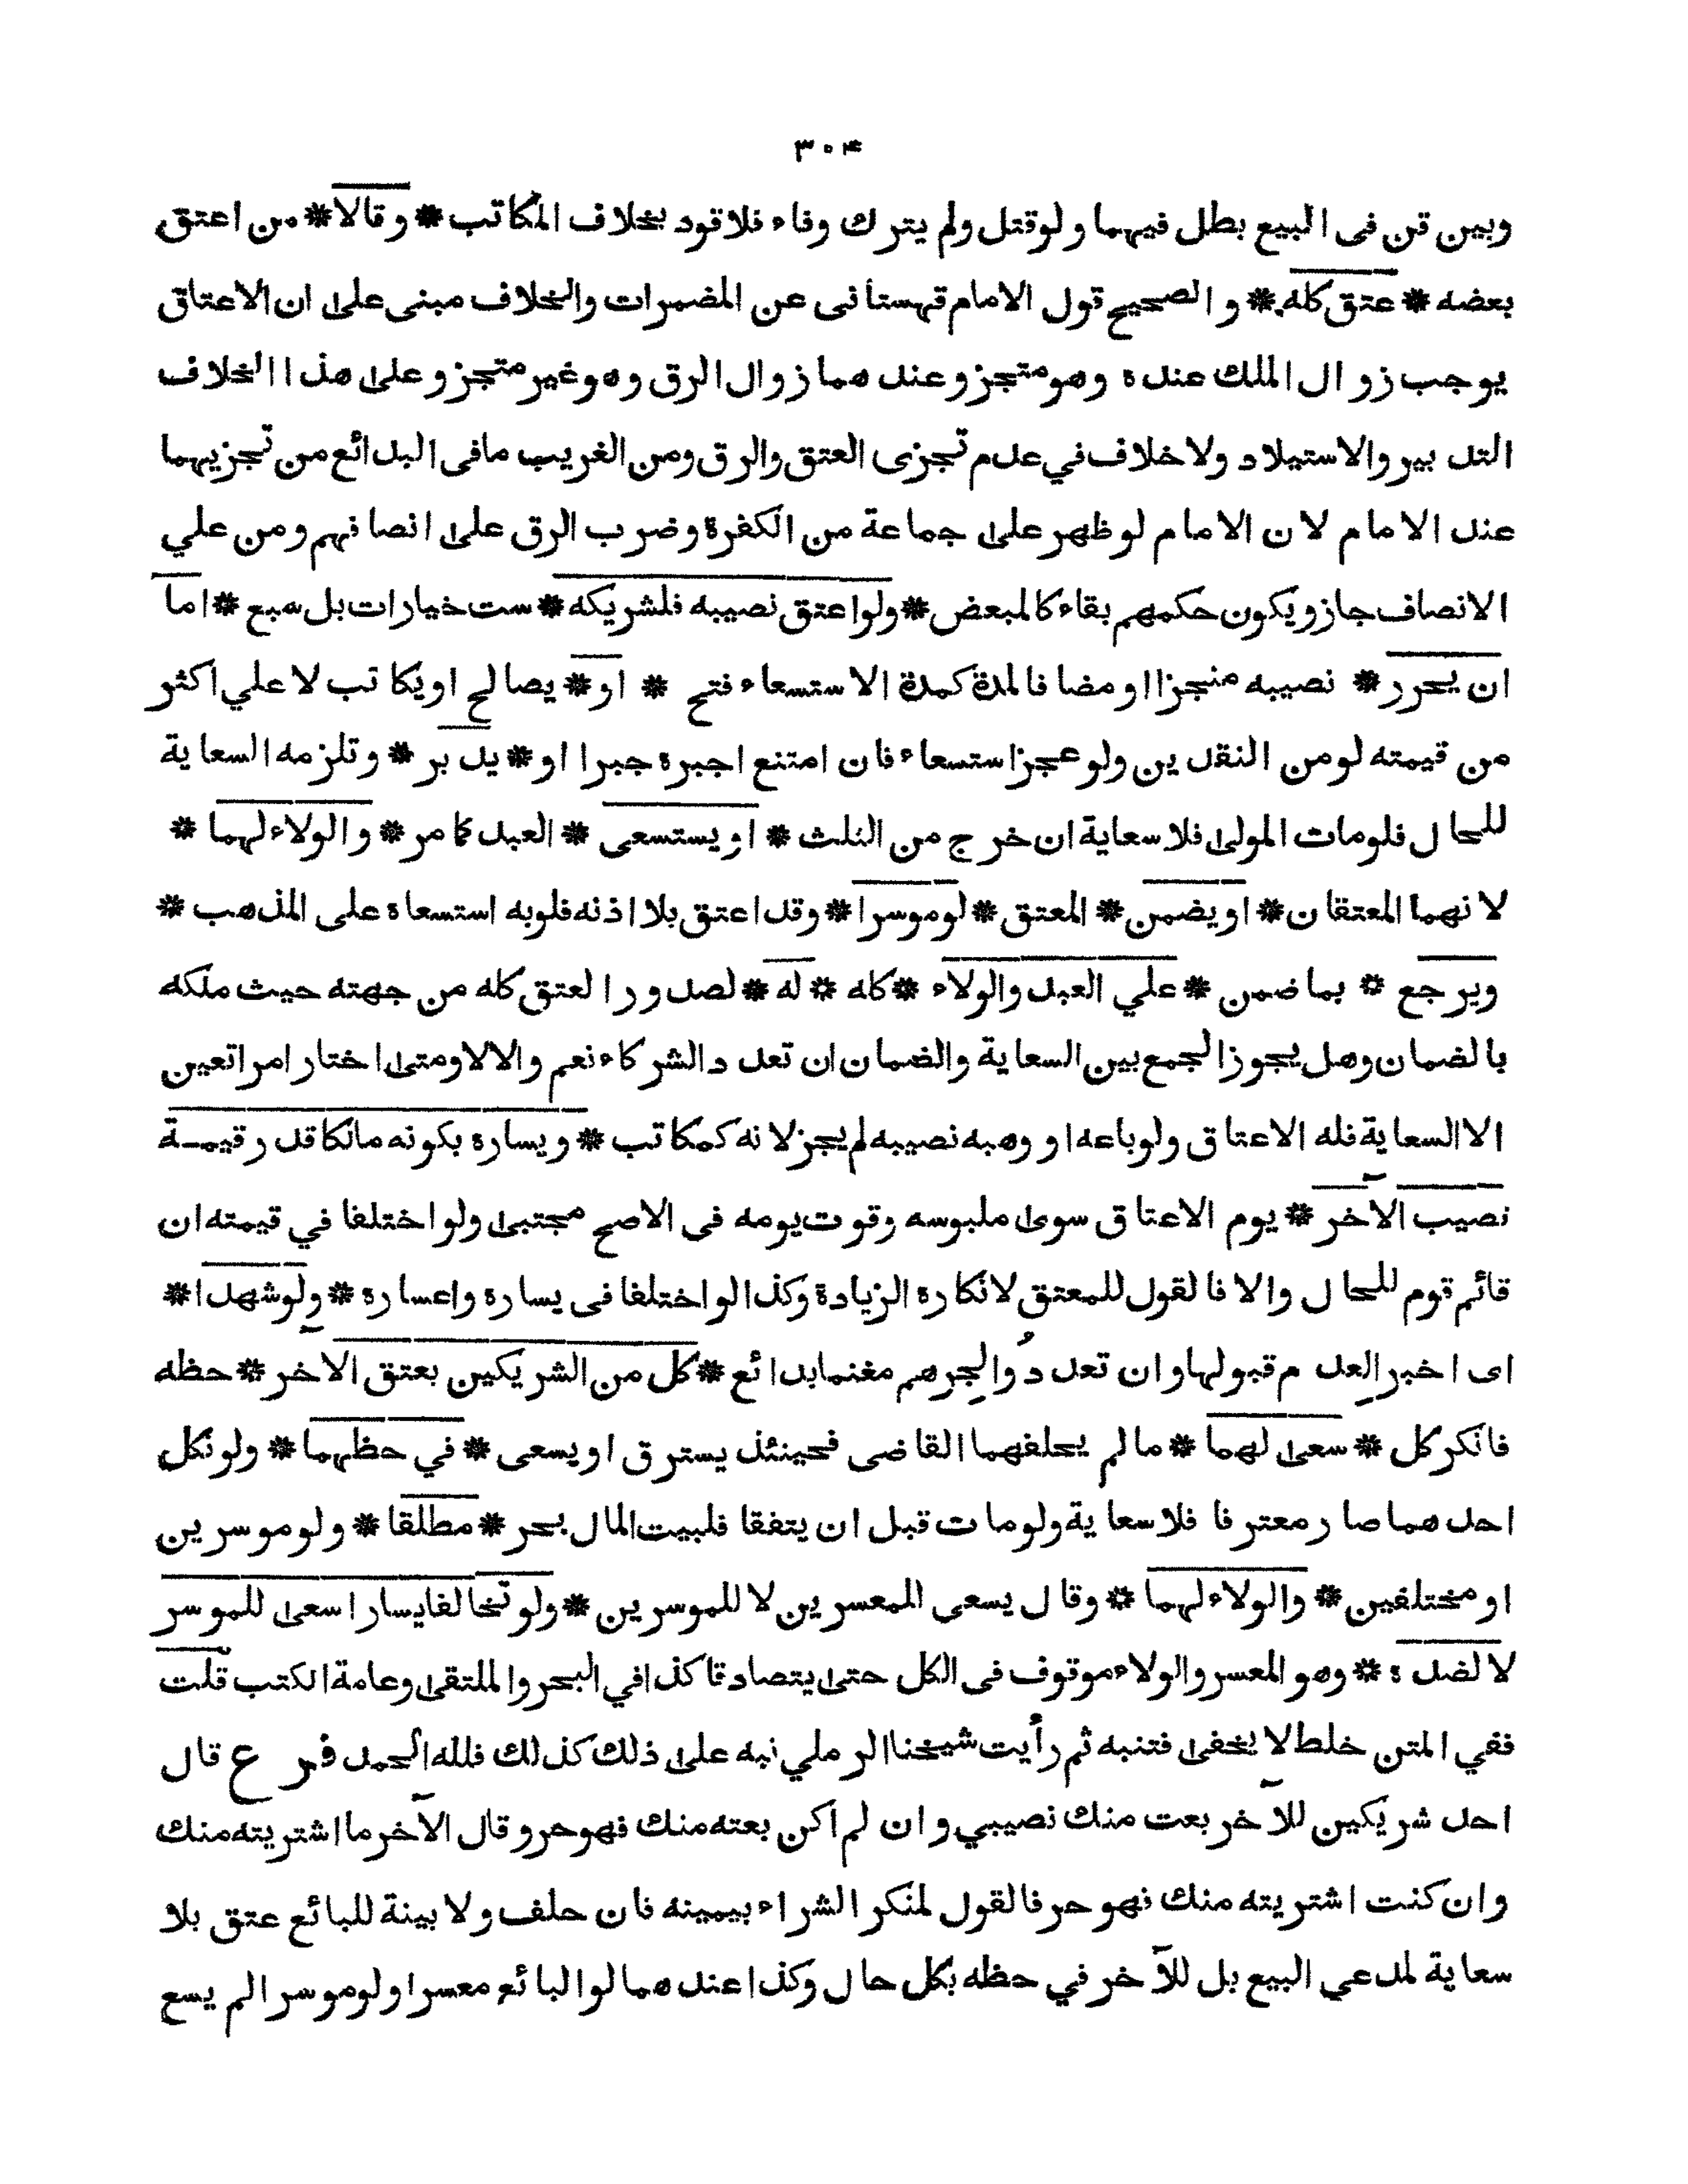 ٣٠۴
وبين قن فى البيع بطل فيهما ولوقتل ولم يترك وفاء فلا قود بخلاف المكاتب * وقالا * من اعتق
بعضه * عتق كله * والصحيح قول الامام قهستانى عن المضمرات والخلاف مبنى على ان الاعتاق
يوجب زوال الملك عنده وهو متجز وعندهما زوال الرق وهو غير متجز وعلى هذا الخلاف
التدبير والاستيلاد ولا خلاف في عدم تجزى العتق والرق ومن الغريب مافى البدائع من تجزيهما
عند الامام لان الامام لو ظهر على جماعة من الكفرة وضرب الرق على انصافهم ومن علي
الانصاف جاز ويكون حكمهم بقاء كالمبعض * ولو اعتق نصيبه فلشريكه * ست خيارات بل سبع * اما
ان يحرر * نصيبه منجزا او مضافا لمدة كمدة الاستسعاء فتح * او * يصالح او يكاتب لا علي اكثر
من قيمته لو من النقدين ولو عجز استسعاء فان امتنع اجبره جبرا او * يدبر * وتلزمه السعاية
للحال فلو مات المولى فلا سعاية ان خرج من الثلث * او يستسعى * العبد كما مر * والولاء لهما *
لانهما المعتقان * او يضمن * المعتق * لو موسرا * وقد اعتق بلا اذنه فلو به استسعاه على المذهب *
ويرجع * بما ضمن * علي العبد والولاء * كله * له * لصدور العتق كله من جهته حيث ملكه
بالضمان وهل يجوز الجمع بين السعاية والضمان ان تعدد الشركاء نعم والا لا ومتى اختار امرا تعين
الا السعاية فله الاعتاق ولو باعه او وهبه نصيبه لم يجز لانه كمكاتب * ويساره بكونه مالكا قدر قيمـة
نصيب الآخر * يوم الاعتاق سوى ملبوسه وقوت يومه فى الاصح مجتبى ولو اختلفا في قيمته ان
قائم قوم للحال والا فالقول للمعتق لانكاره الزيادة وكذا لو اختلفا فى يساره واعساره * ولو شهدا *
اى اخبر العدم قبولها وان تعددُوا لجرهم مغنما بدائع * كل من الشريكين بعتق الآخر * حظه
فانكر كل * سعى لهما * مالم يحلفهما القاضى فحينئذ يسترق او يسعى * في حظهما * ولو نكل
احدهما صار معترفا فلا سعاية ولو مات قبل ان يتفقا فلبيت المال بحر * مطلقا * ولو موسرين
او مختلفين * والولاء لهما * وقال يسعى للمعسرين لا للموسرين * ولو تخالفا يسارا سعى للموسر
لا لضده * وهو المعسر والولاء موقوف فى الكل حتى يتصادقا كذا في البحر والملتقى وعامة الكتب قلت
ففي المتن خلط لا يخفى فتنبه ثم رأيت شيخنا الرملي نبه على ذلك كذلك فلله الحمد فرع قال
احد شريكين للآخر بعت منك نصيبي وان لم اكن بعته منك فهو حر وقال الآخر ما اشتريته منك
وان كنت اشتريته منك فهو حر فالقول لمنكر الشراء بيمينه فان حلف ولا بينة للبائع عتق بلا
سعاية لمدعى البيع بل للآخر في حظه بكل حال وكذا عندهما لو البائع معسرا ولو موسرا لم يسع